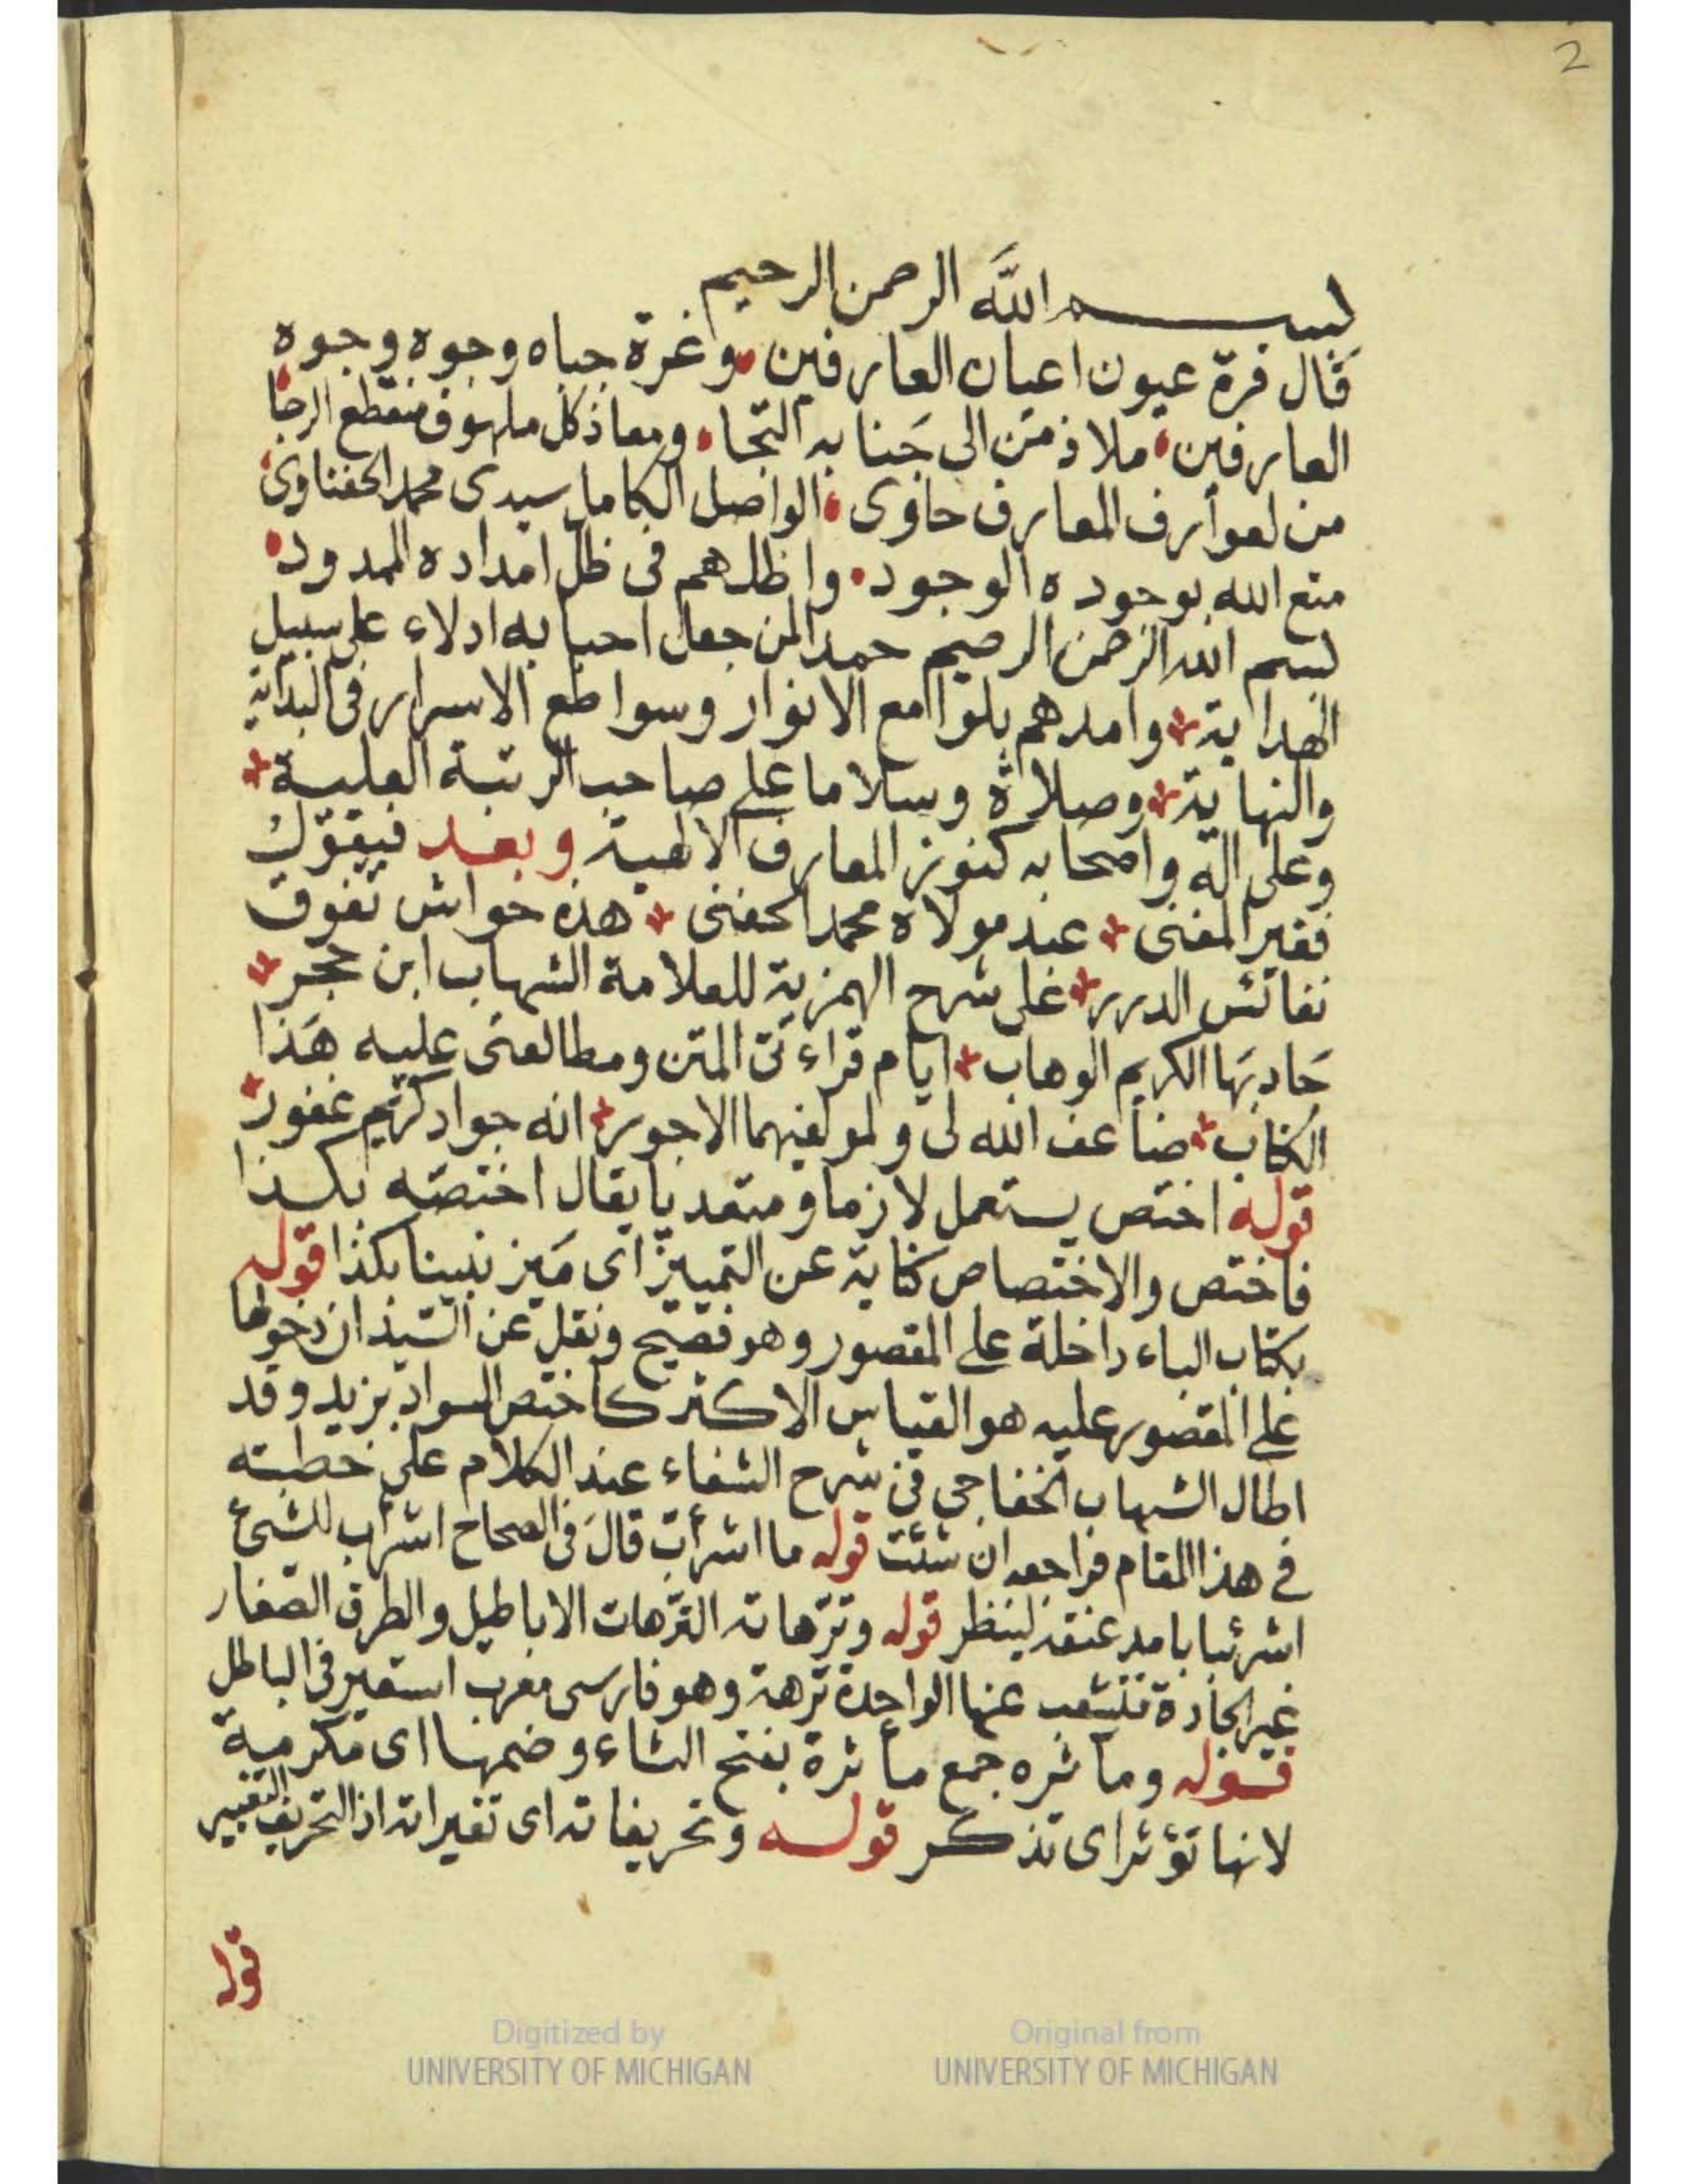 2
بسم الله الرحمن الرحيم
قال قرة عيون اعيان العارفين، وغرة جباه وجوه وجوه
العارفين، ملاذ من الى جنابه التجا، ومعاذ كل ملهوف منقطع الرجا،
من لعوأرف المعارف حاوى، الواصل الكامل سيدى محمد الحفناوى،
متع الله بوجوده الوجود، واظلهم فى ظل امداده الممدود،
بسم الله الرحمن الرحيم حمدا لمن جعل احبابه ادلاء على سبيل
الهداية وامدهم بلوامع الانوار وسواطع الاسرار فى البداية
والنهاية وصلاة وسلاما على صاحب الرتبة العلية
وعلى اله واصحابه كنوز المعارف الالهية وبعد فيقول
فقير المغنى عبد مولاه محمد الحفنى هذه حواش تفوق
نفائس الدرر على شرح الهمزية للعلامة الشهاب ابن حجر
جاد بها الكريم الوهاب ايام قراءتى المتن ومطالعتى عليه هذا
الكتاب ضاعف الله لى ولمولفيهما الاجور انه جواد كريم غفور
قوله اختص يستعمل لازما ومتعديا يقال اختصه بكذا
فاختص والاختصاص كناية عن التمييز اى ميز نبينا بكذا قوله
بكتاب الباء داخلة على المقصور وهو فصيح ونقل عن السيد ان دخولها
على المقصور عليه هو القياس الاكثر كاختص السواد بزيد وقد
اطال الشهاب الخفاجى فى شرح الشفاء عند الكلام على خطبته
فى هذا المقام فراجعه ان شئت قوله ما اشرأب قال فى الصحاح اشرأب للشئ
اشرئبابا مد عنقه لينظر قوله وترهاته الترهات الاباطيل والطرق الصغار
غير الجادة تتشعب عنها الواحدة ترهة وهو فارسى معرب استعير فى الباطل
قوله ومآثره جمع مأثرة بفتح الثاء وضمها اى مكرمة
لانها تؤثر اى تذكر قوله وتحريفاته اى تغيراته اذ التحريف التغيير
قوله
Digitized by
UNIVERSITY OF MICHIGAN
Original from
UNIVERSITY OF MICHIGAN